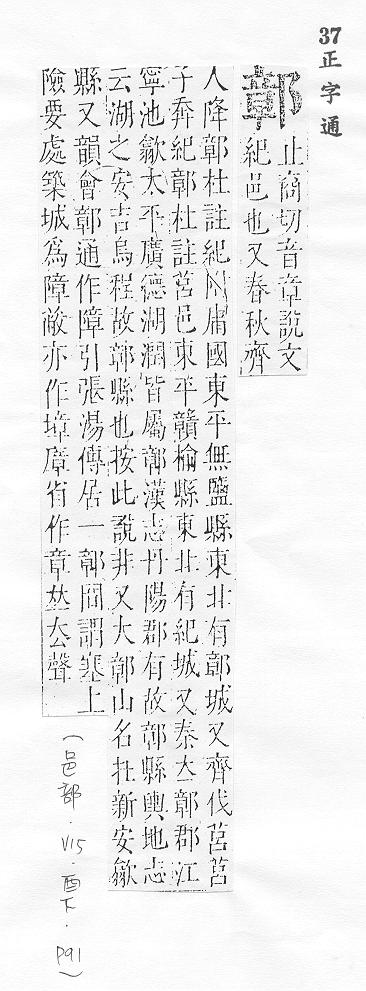 37正字通
鄣
止商切音章說文
紀邑也又春秋齊
人降鄣杜註紀附庸國東平無鹽縣東北有鄣城又齊伐莒莒
子奔紀鄣杜註莒邑東平贛榆縣東北有紀城又秦厺鄣郡江
寧池歙太平廣德湖潤皆屬鄣漢志丹陽郡有故鄣縣輿地志
云湖之安吉烏程故鄣縣也按此說非又大鄣山名在新安歙
縣又韻會鄣通作障引張湯傳居一鄣間謂塞上
險要處築城為障蔽亦作墇廧省作章𠀤厺聲
(邑部.V15.酉下.P91)